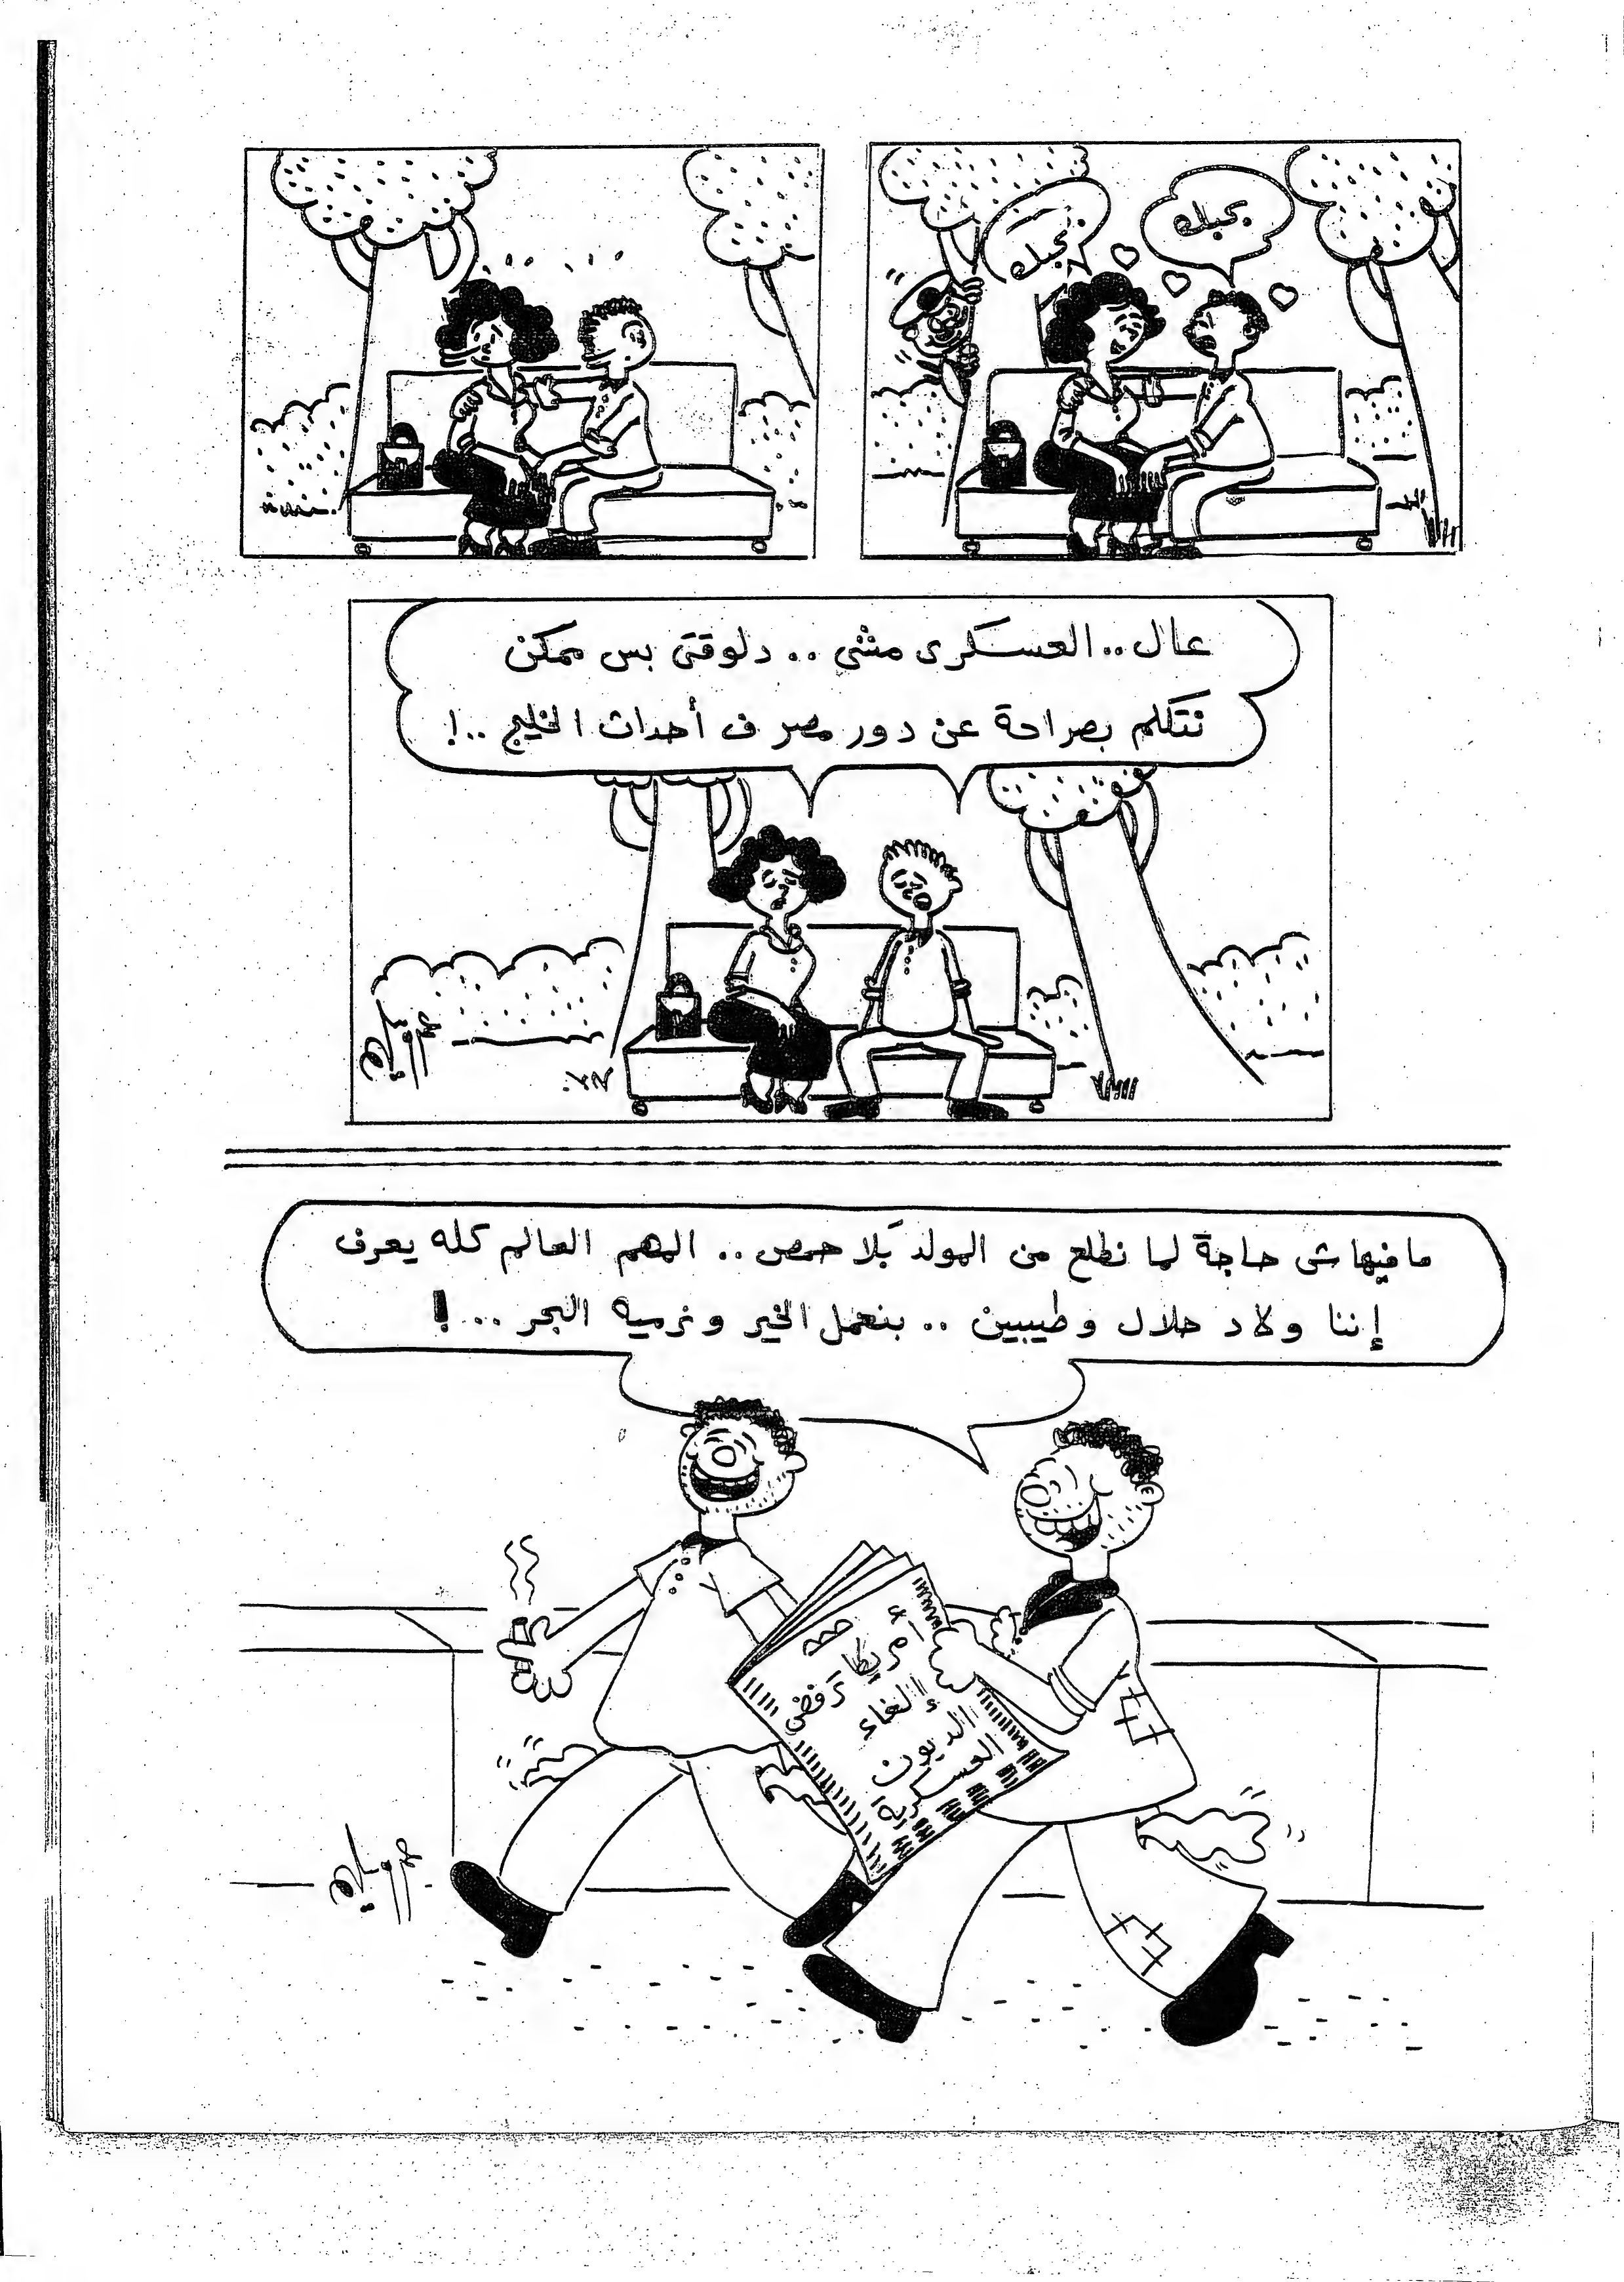 بحبك
بحبك
عال .. العسكرى مشى .. دلوقتى بس ممكن
نتكلم بصراحة عن دور مصر ف أحداث الخليج ..!
ما فيهاش حاجة لما نطلع من المولد بلا حمص .. المهم العالم كله يعرف
إننا ولاد حلال وطيبين .. بنعمل الخير ونرميه البحر ..!
أمريكا ترفض
إلغاء
الديون
العسكرية